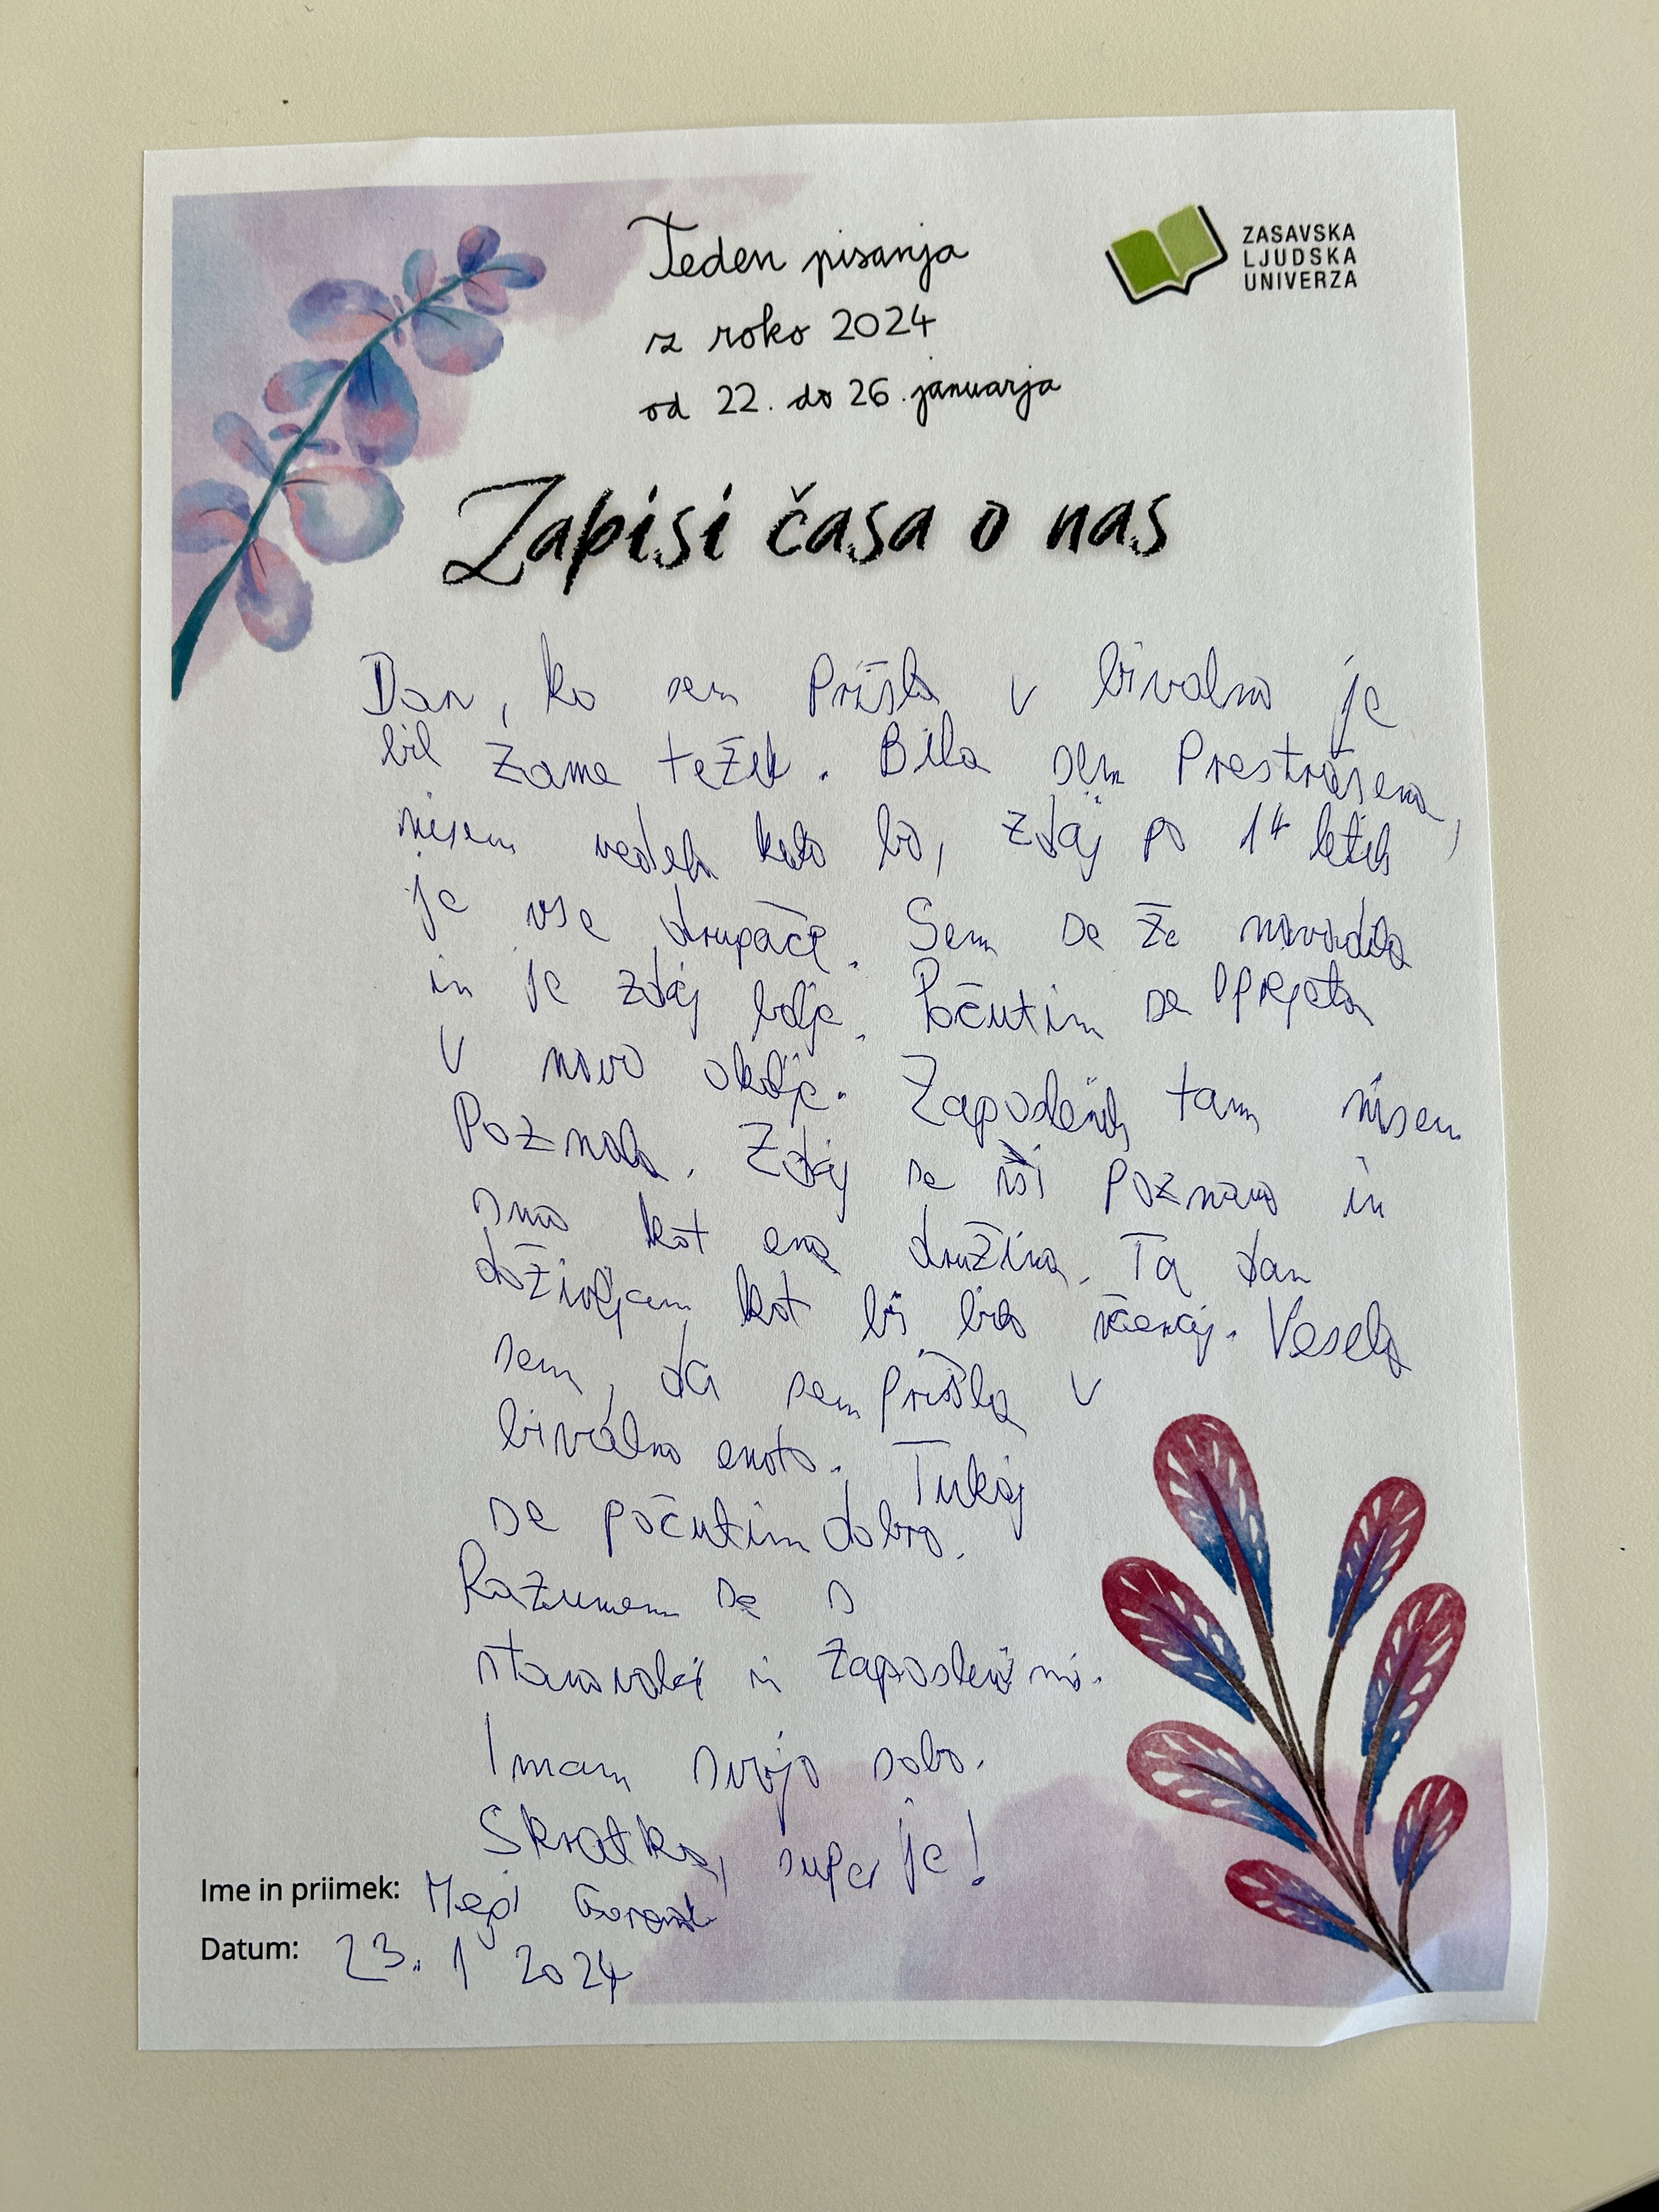 Teden pisanja
z roko 2024
od 22. do 26. januarja
ZASAVSKA
LJUDSKA
UNIVERZA
Zapisi časa o nas
Dan, ko sem Prišla v bivalno je
bil zame težek. Bila sem Prestrašena,
nisem vedela kako bo, zdaj po 14 letih
je vse drugače. Sem se že navadila
in je zdaj bolje. Počutim se sprejeta
v novo okolje. Zaposlenih tam nisem
Poznala. Zdaj se vsi poznamo in
smo kot ena družina. Ta dan
doživljam kot bi bilo včeraj. Vesela
sem, da sem prišla v
bivalno enoto. Tukaj
se počutim dobro.
Razumem se s
stanovalci in zaposlenimi.
Imam svojo sobo.
Skratka, super je!
Ime in priimek: Megi
Datum: 23. 1 2024